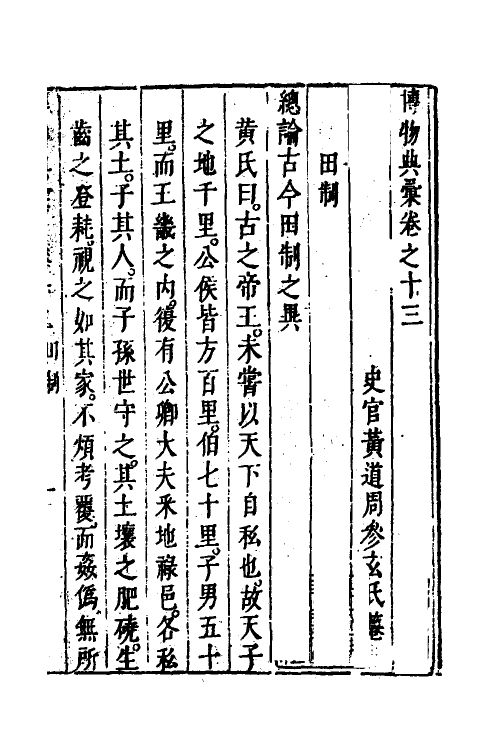 博物典彙卷之十三
史官黃道周參玄氏纂
田制
總論古今田制之異
黄氏曰。古之帝王。未嘗以天下自私也。故天子
之地千里。公侯皆方百里。伯七十里。子男五十
里。而王畿之内。復有公卿大夫采地祿邑。各私
其土。子其人。而子孫世守之。其土壤之肥磽。生
齒之登耗。視之如其家。不煩考覈。而姦僞無所
田制
一